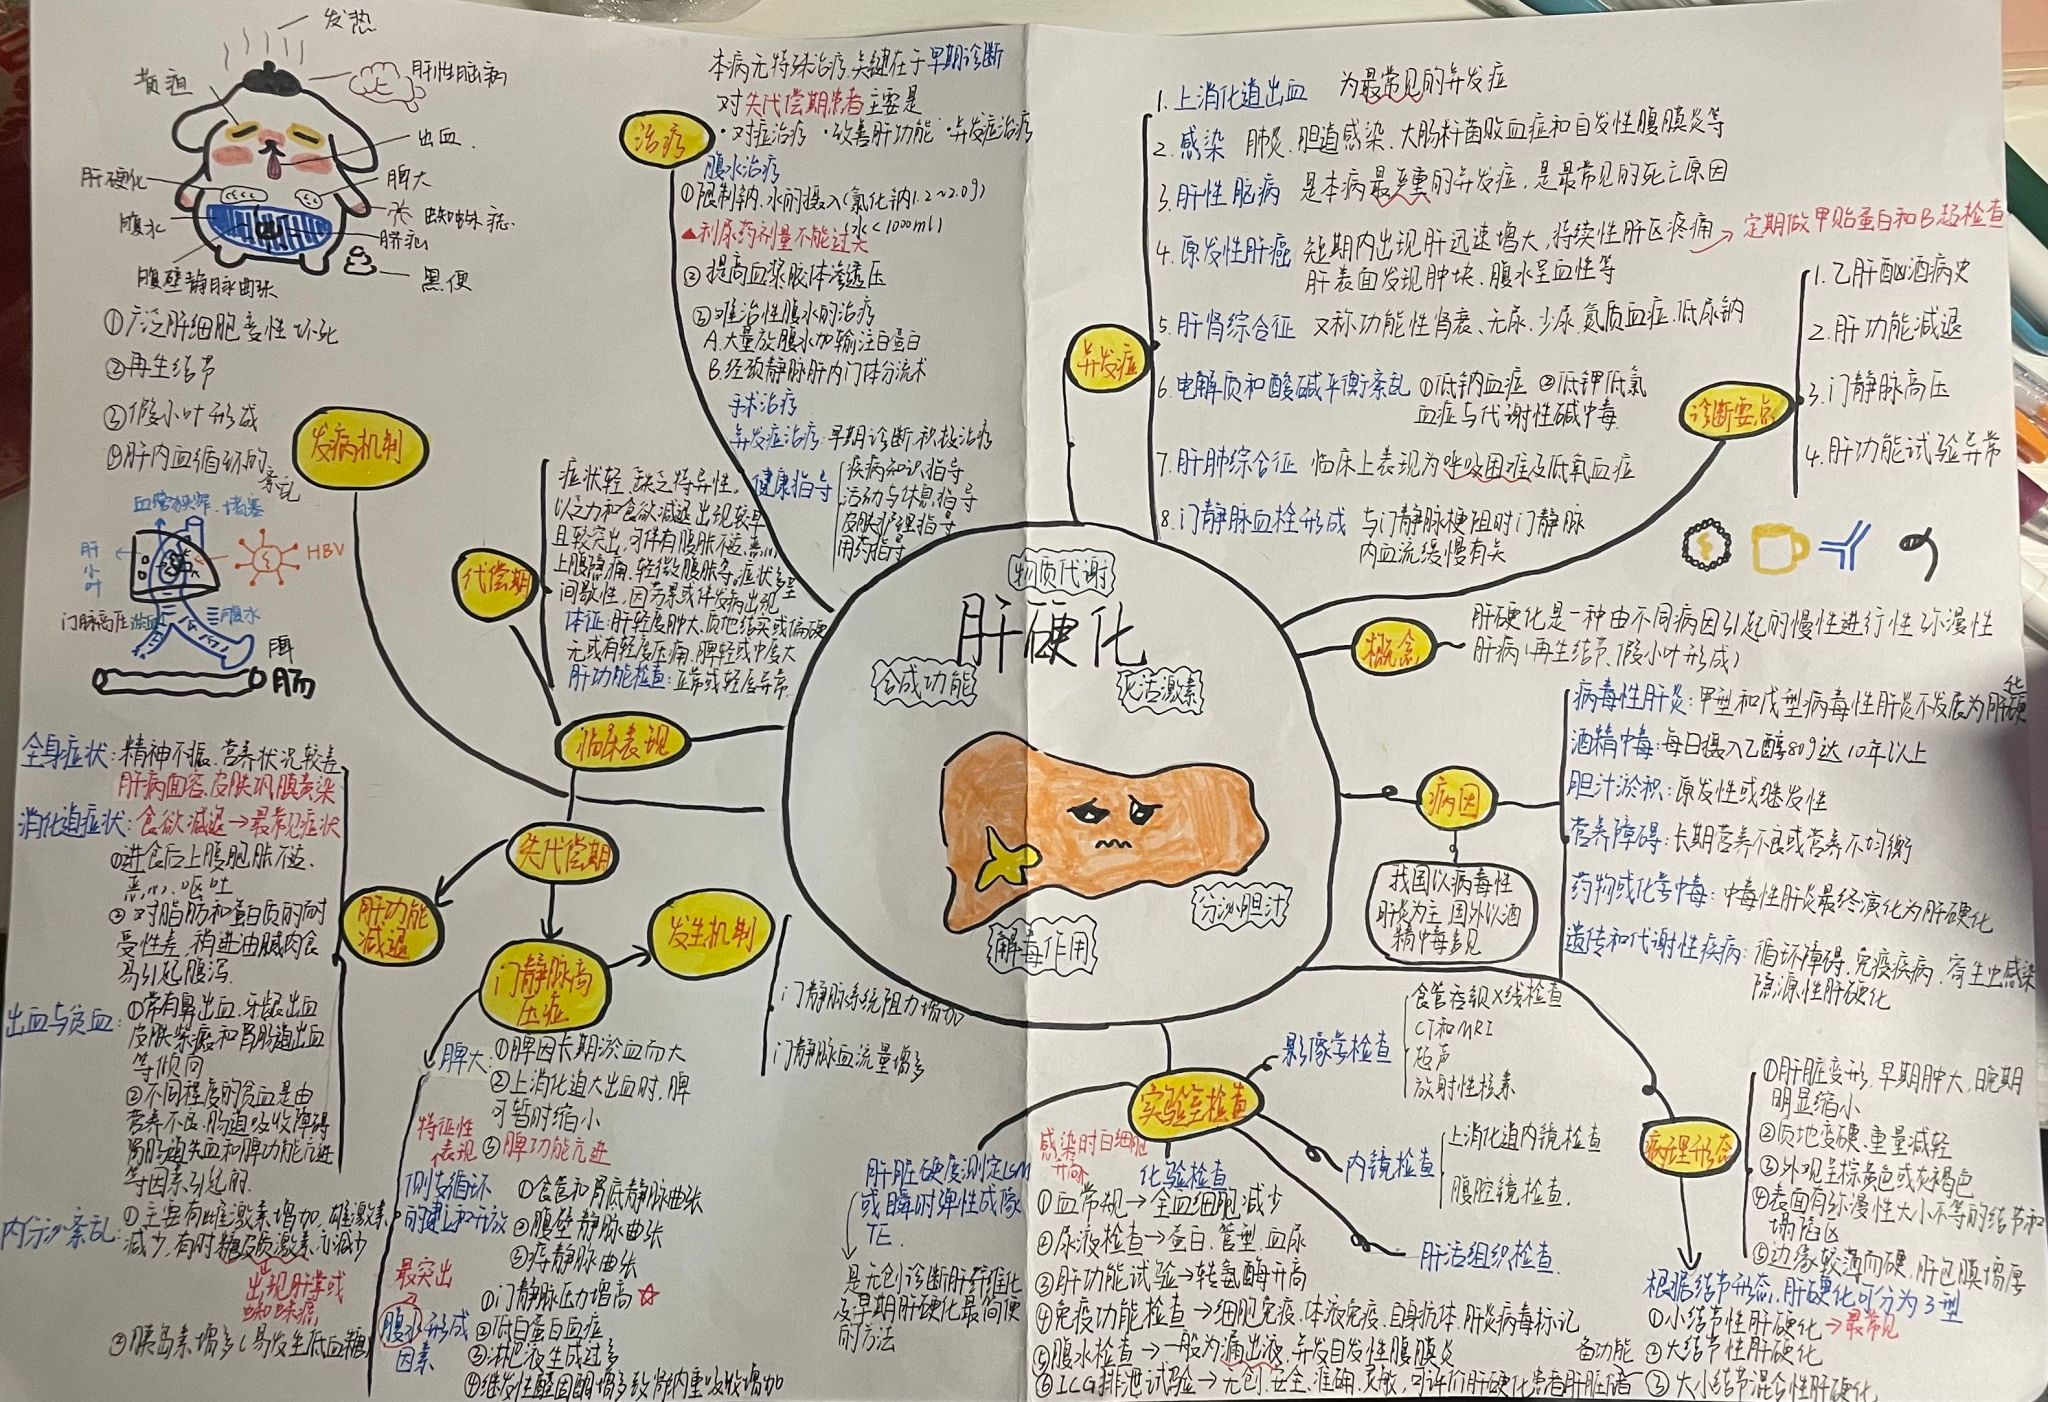 发热
黄疸
肝性脑病
出血
肝硬化
脾大
腹水
蜘蛛痣
脐疝
腹壁静脉曲张
黑便
①广泛肝细胞变性坏死
②再生结节
③假小叶形成
④肝内血循环的
紊乱
发病机制
肝小叶
HBV
门脉高压
腹水
脾
肠
治疗
本病无特殊治疗,关键在于早期诊断
对失代偿期患者主要是
·对症治疗 ·改善肝功能 ·并发症治疗
腹水治疗
①限制钠、水的摄入(氯化钠1.2~2.0g)
水<1000ml)
▲利尿药剂量不能过大
②提高血浆胶体渗透压
③难治性腹水的治疗
A.大量放腹水加输注白蛋白
B.经颈静脉肝内门体分流术
手术治疗
并发症治疗:早期诊断,积极治疗
健康指导
疾病知识指导
活动与休息指导
皮肤护理指导
用药指导
代偿期
症状轻,缺乏特异性。
以乏力和食欲减退出现较早
且较突出,可伴有腹胀不适、恶心、
上腹隐痛、轻微腹胀等。症状多呈
间歇性,因劳累或伴发病出现
体征:肝轻度肿大、质地结实或偏硬
无或有轻度压痛,脾轻或中度大
肝功能检查:正常或轻度异常
临床表现
失代偿期
肝功能
减退
全身症状:精神不振、营养状况较差
肝病面容、皮肤巩膜黄染
消化道症状:食欲减退→最常见症状
①进食后上腹饱胀不适、
恶心、呕吐
②对脂肪和蛋白质的耐
受性差,稍进油腻肉食
易引起腹泻
出血与贫血:①常有鼻出血、牙龈出血
皮肤紫癜和胃肠道出血
等倾向
②不同程度的贫血是由
营养不良、肠道吸收障碍
胃肠道失血和脾功能亢进
等因素引起的
内分泌紊乱:①主要有雌激素增加、雄激素
减少,有时糖皮质激素亦减少
出现肝掌或
蜘蛛痣
②胰岛素增多(易发生低血糖)
门静脉高
压症
发生机制
门静脉系统阻力增加
门静脉血流量增多
脾大:①脾因长期淤血而大
②上消化道大出血时,脾
可暂时缩小
③脾功能亢进
特征性
表现
侧支循环
的建立和开放
①食管和胃底静脉曲张
②腹壁静脉曲张
③痔静脉曲张
最突出
腹水形成
因素
①门静脉压力增高☆
②低白蛋白血症
③淋巴液生成过多
④继发性醛固酮增多致肾钠重吸收增加
物质代谢
肝硬化
合成功能
灭活激素
分泌胆汁
解毒作用
并发症
1.上消化道出血 为最常见的并发症
2.感染 肺炎、胆道感染、大肠杆菌败血症和自发性腹膜炎等
3.肝性脑病 是本病最严重的并发症,是最常见的死亡原因
4.原发性肝癌 短期内出现肝迅速增大,持续性肝区疼痛→定期做甲胎蛋白和B超检查
肝表面发现肿块、腹水呈血性等
5.肝肾综合征 又称功能性肾衰、无尿、少尿、氮质血症、低尿钠
6.电解质和酸碱平衡紊乱 ①低钠血症 ②低钾低氯
血症与代谢性碱中毒
7.肝肺综合征 临床上表现为呼吸困难及低氧血症
8.门静脉血栓形成 与门静脉梗阻时门静脉
内血流缓慢有关
诊断要点
1.乙肝酗酒病史
2.肝功能减退
3.门静脉高压
4.肝功能试验异常
概念
肝硬化是一种由不同病因引起的慢性进行性弥漫性
肝病(再生结节、假小叶形成)
病因
我国以病毒性
肝炎为主,国外以酒
精中毒多见
病毒性肝炎:甲型和戊型病毒性肝炎不发展为肝硬化
酒精中毒:每日摄入乙醇80g达10年以上
胆汁淤积:原发性或继发性
营养障碍:长期营养不良或营养不均衡
药物或化学中毒:中毒性肝炎最终演化为肝硬化
遗传和代谢性疾病:循环障碍、免疫疾病、寄生虫感染
隐源性肝硬化
实验室检查
影像学检查
食管吞钡X线检查
CT和MRI
超声
放射性核素
内镜检查
上消化道内镜检查
腹腔镜检查
肝活组织检查
肝脏硬度测定LSM
或瞬时弹性成像
TE
是无创诊断肝纤维化
及早期肝硬化最简便
的方法
感染时白细胞
升高
化验检查
①血常规→全血细胞减少
②尿液检查→蛋白、管型、血尿
③肝功能试验→转氨酶升高
④免疫功能检查→细胞免疫、体液免疫、自身抗体、肝炎病毒标记
⑤腹水检查→一般为漏出液,并发自发性腹膜炎
⑥ICG排泄试验→无创、安全、准确、灵敏,可评价肝硬化患者肝脏储备功能
病理形态
①肝脏变形,早期肿大,晚期
明显缩小
②质地变硬、重量减轻
③外观呈棕黄色或灰褐色
④表面有弥漫性大小不等的结节和
塌陷区
⑤边缘较薄而硬,肝包膜增厚
根据结节形态,肝硬化可分为3型
①小结节性肝硬化→最常见
②大结节性肝硬化
③大小结节混合性肝硬化